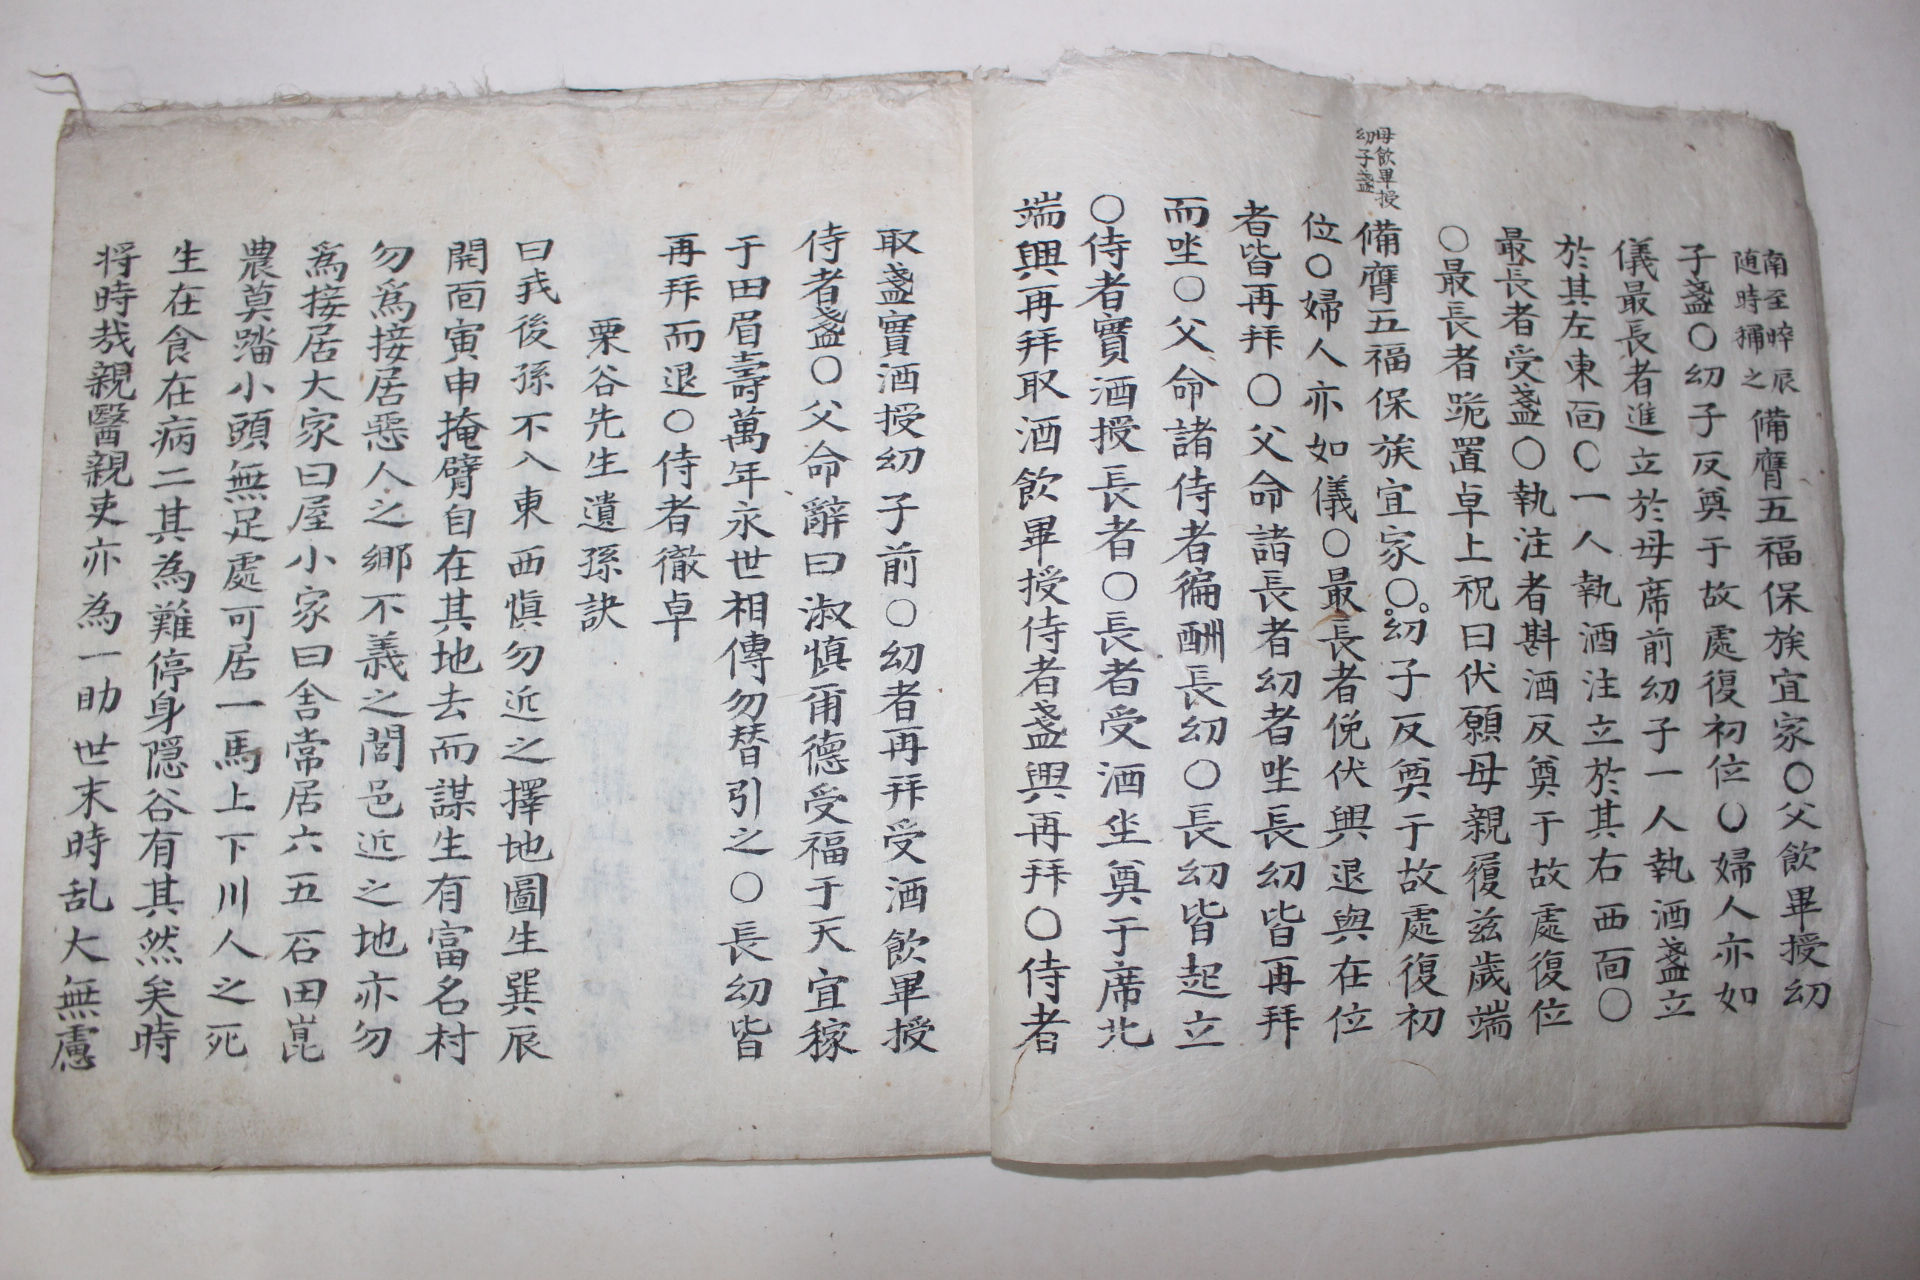 南至晬辰
随時稱之
備膺五福保族宜家○父飮畢授幼
子盞○幼子反奠于故處復初位○婦人亦如
儀最長者進立於母席前幼子一人執酒盞立
於其左東面○一人執酒注立於其右西面○
最長者受盞○執注者斟酒反奠于故處復位
○最長者跪置卓上祝曰伏願母親履茲歲端
母飮畢授
幼子盞
備膺五福保族宜家○幼子反奠于故處復初
位○婦人亦如儀○最長者俛伏興退與在位
者皆再拜○父命諸長者幼者坐長幼皆再拜
而坐○父命諸侍者徧酬長幼○長幼皆起立
○侍者實酒授長者○長者受酒坐奠于席北
端興再拜取酒飮畢授侍者盞興再拜○侍者
取盞實酒授幼子前○幼者再拜受酒飮畢授
侍者盞○父命辭曰淑愼甭德受福于天宜稼
于田眉壽萬年永世相傳勿替引之○長幼皆
再拜而退○侍者徹卓
栗谷先生遺孫訣
曰我後孫不入東西愼勿近之擇地圖生巽辰
開面寅申掩臂自在其地去而謀生有富名村
勿爲接居惡人之鄉不義之閭邑近之地亦勿
爲接居大家曰屋小家曰舍常居六五石田崑
農莫踏小頭無足處可居一馬上下川人之死
生在食在病二其為難停身隱谷有其然矣時
将時哉親醫親吏亦為一助世末時乱大無慮